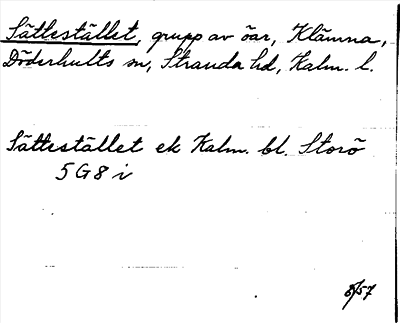 Sättestället, grupp av öar, Klämna,
Döderhults sn, Stranda hd, Kalm. l.
Sättestället ek Kalm. bl. Storö
5G8i
8/57